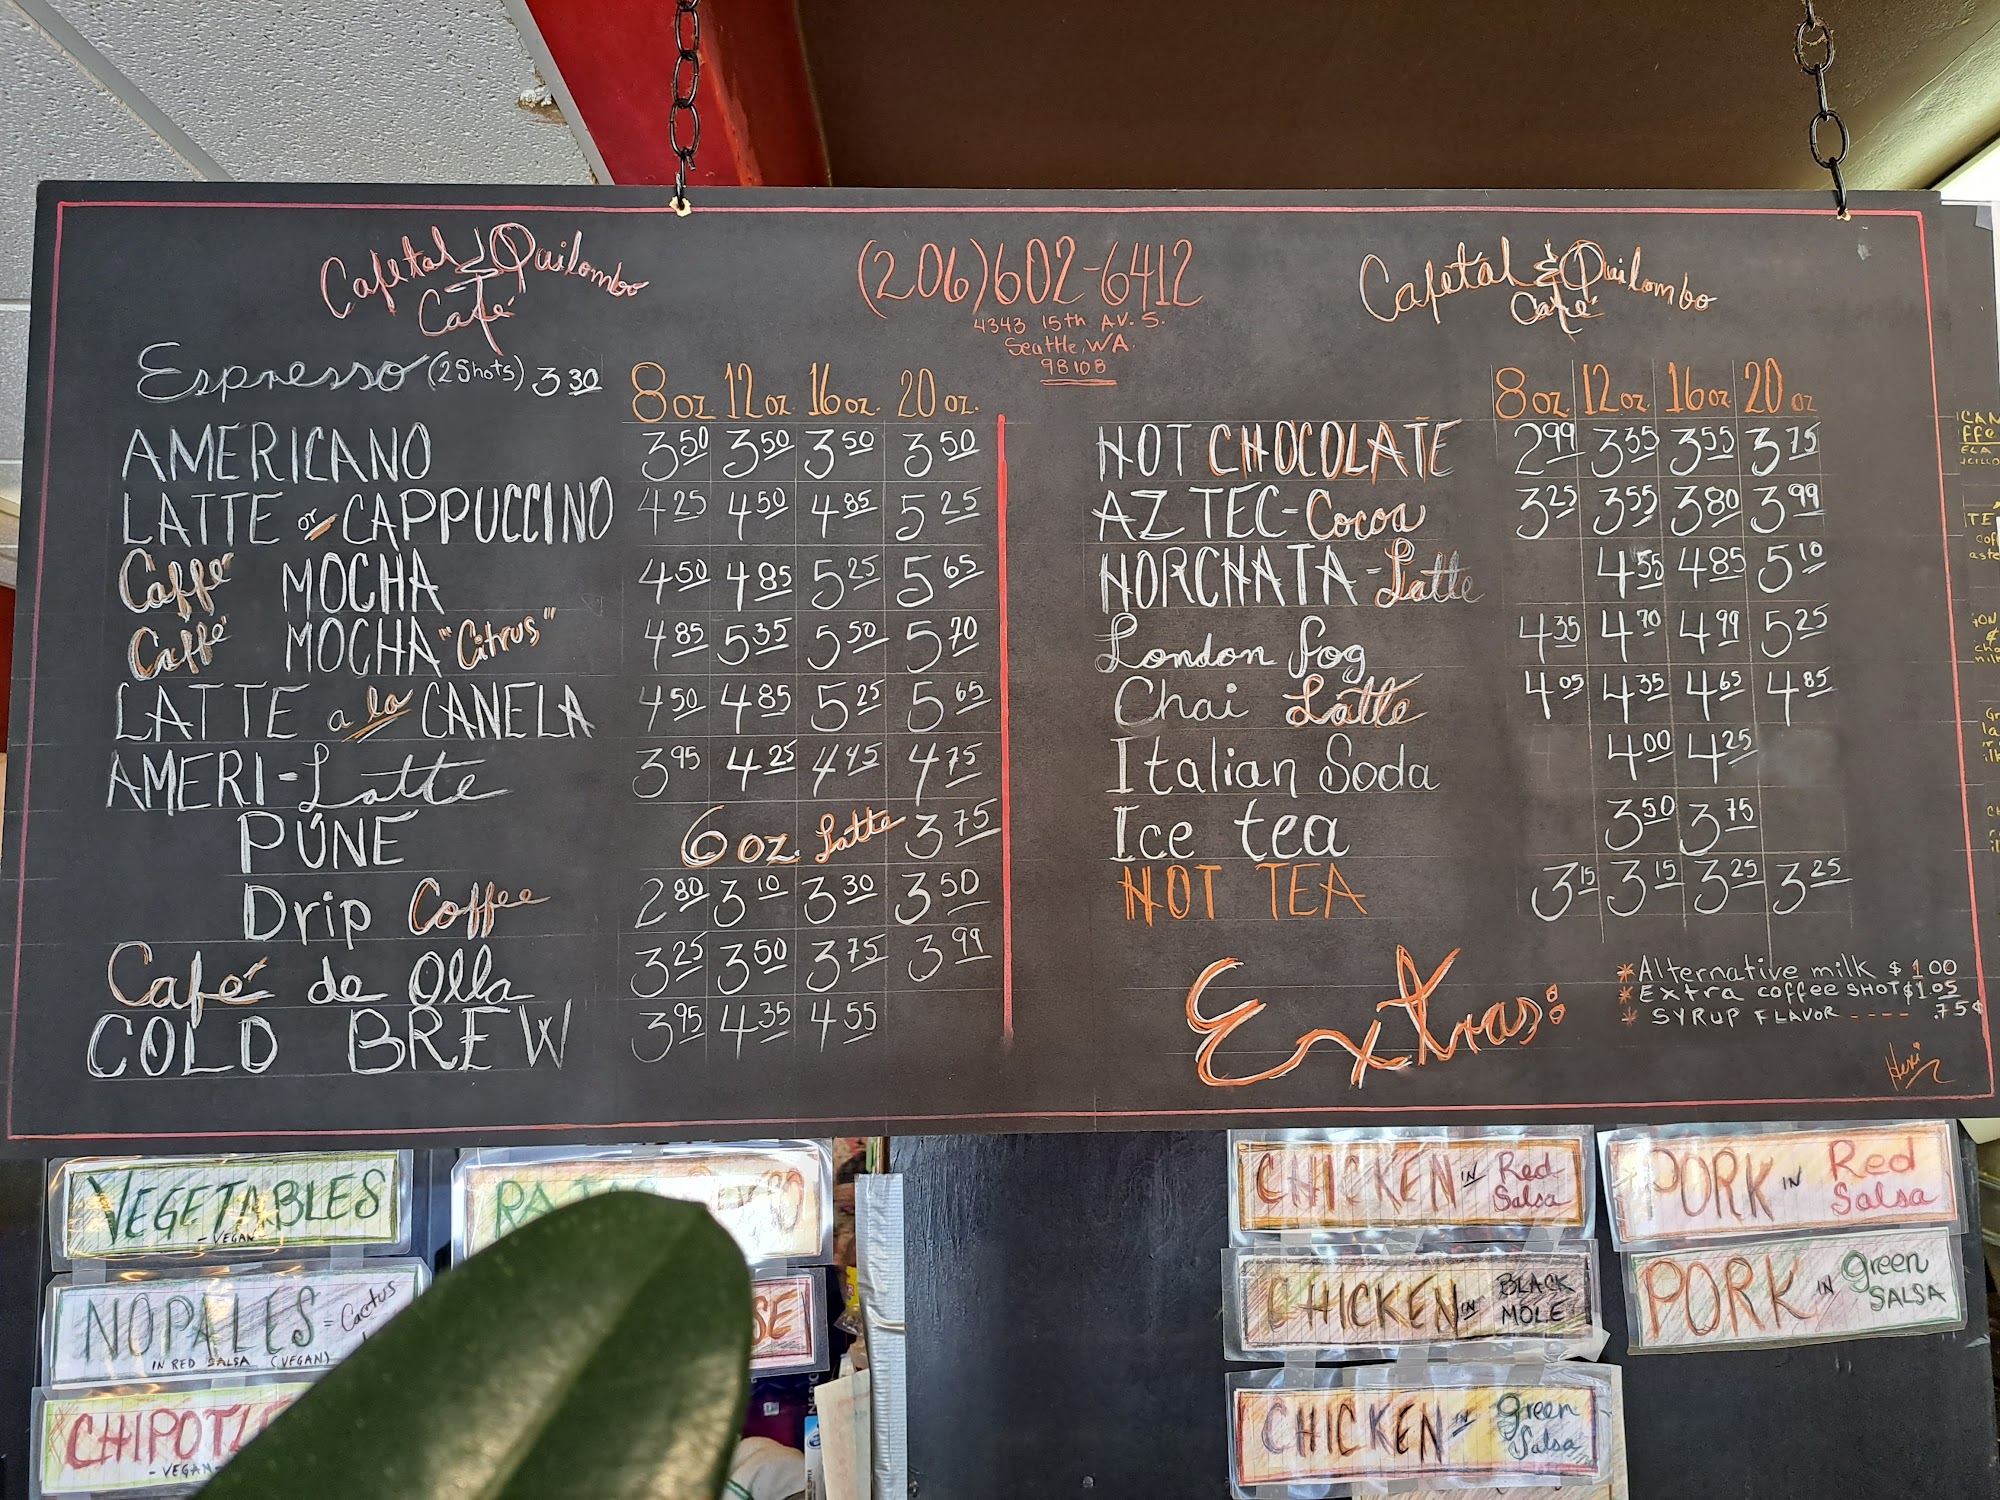 Cafetal & Quilombo
Café
(206)602-6412
4343 15th AV. S.
Seattle, WA.
98108
Cafetal & Quilombo
Café
Espresso (2 Shots) 3 30
8 oz. 12 oz 16 oz. 20 oz.
AMERICANO 3 50 3 50 3 50 3 50
LATTE or CAPPUCCINO 4 25 4 50 4 85 5 25
Caffé MOCHA 4 50 4 85 5 25 5 65
Caffé MOCHA "Citrus" 4 85 5 35 5 50 5 70
LATTE a la CANELA 4 50 4 85 5 25 5 65
AMERI-Latte 3 95 4 25 4 45 4 75
PÚNE 6 oz. Latte 3 75
Drip Coffee 2 80 3 10 3 30 3 50
Café de Olla 3 25 3 50 3 75 3 99
COLD BREW 3 95 4 35 4 55
8 oz. 12 oz. 16 oz. 20 oz
HOT CHOCOLATE 2 99 3 35 3 55 3 75
AZTEC-Cocoa 3 25 3 55 3 80 3 99
HORCHATA-Latte 4 55 4 85 5 10
London Fog 4 35 4 70 4 99 5 25
Chai Latte 4 05 4 35 4 65 4 85
Italian Soda 4 00 4 25
Ice tea 3 50 3 75
HOT TEA 3 15 3 15 3 25 3 25
Extras:
* Alternative milk $ 1.00
* Extra coffee SHOT $1.05
* SYRUP FLAVOR ---- .75¢
VEGETABLES
- VEGAN -
NOPALES = Cactus
IN RED SALSA (VEGAN)
CHIPOTLE
- VEGAN -
CHICKEN IN Red Salsa
CHICKEN IN BLACK MOLE
CHICKEN IN Green Salsa
PORK IN Red Salsa
PORK IN Green SALSA